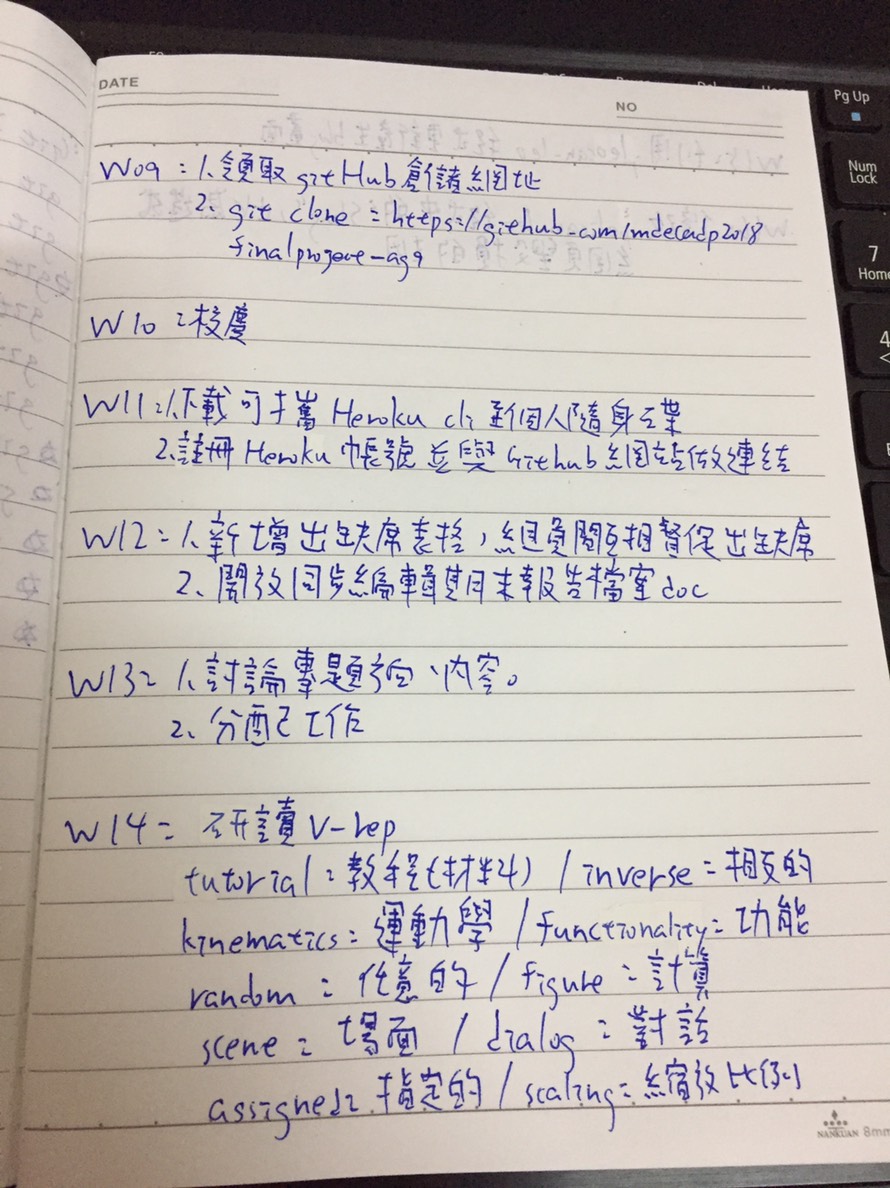 DATE
NO
W09：1.領取gitHub倉儲網址
2. git clone：https://github.com/mdecadp2018
finalproject-ag9
W10：校慶
W11：1.下載可攜Heroku cli 到個人隨身碟
2.註冊Heroku 帳號並與Github網站做連結
W12：1.新增出缺席表格，組員間互相督促出缺席
2、開放同步編輯期末報告檔案doc
W13：1.討論專題方向、內容。
2、分配工作
W14：研讀V-rep
tutorial：教程(材料) / inverse：相反的
kinematics：運動學 / functionality：功能
random：任意的 / figure：計算
scene：場面 / dialog：對話
assigned：指定的 / scaling：縮放比例
NANKUAN 8mm
Pg Up
Num
Lock
7
Home
4